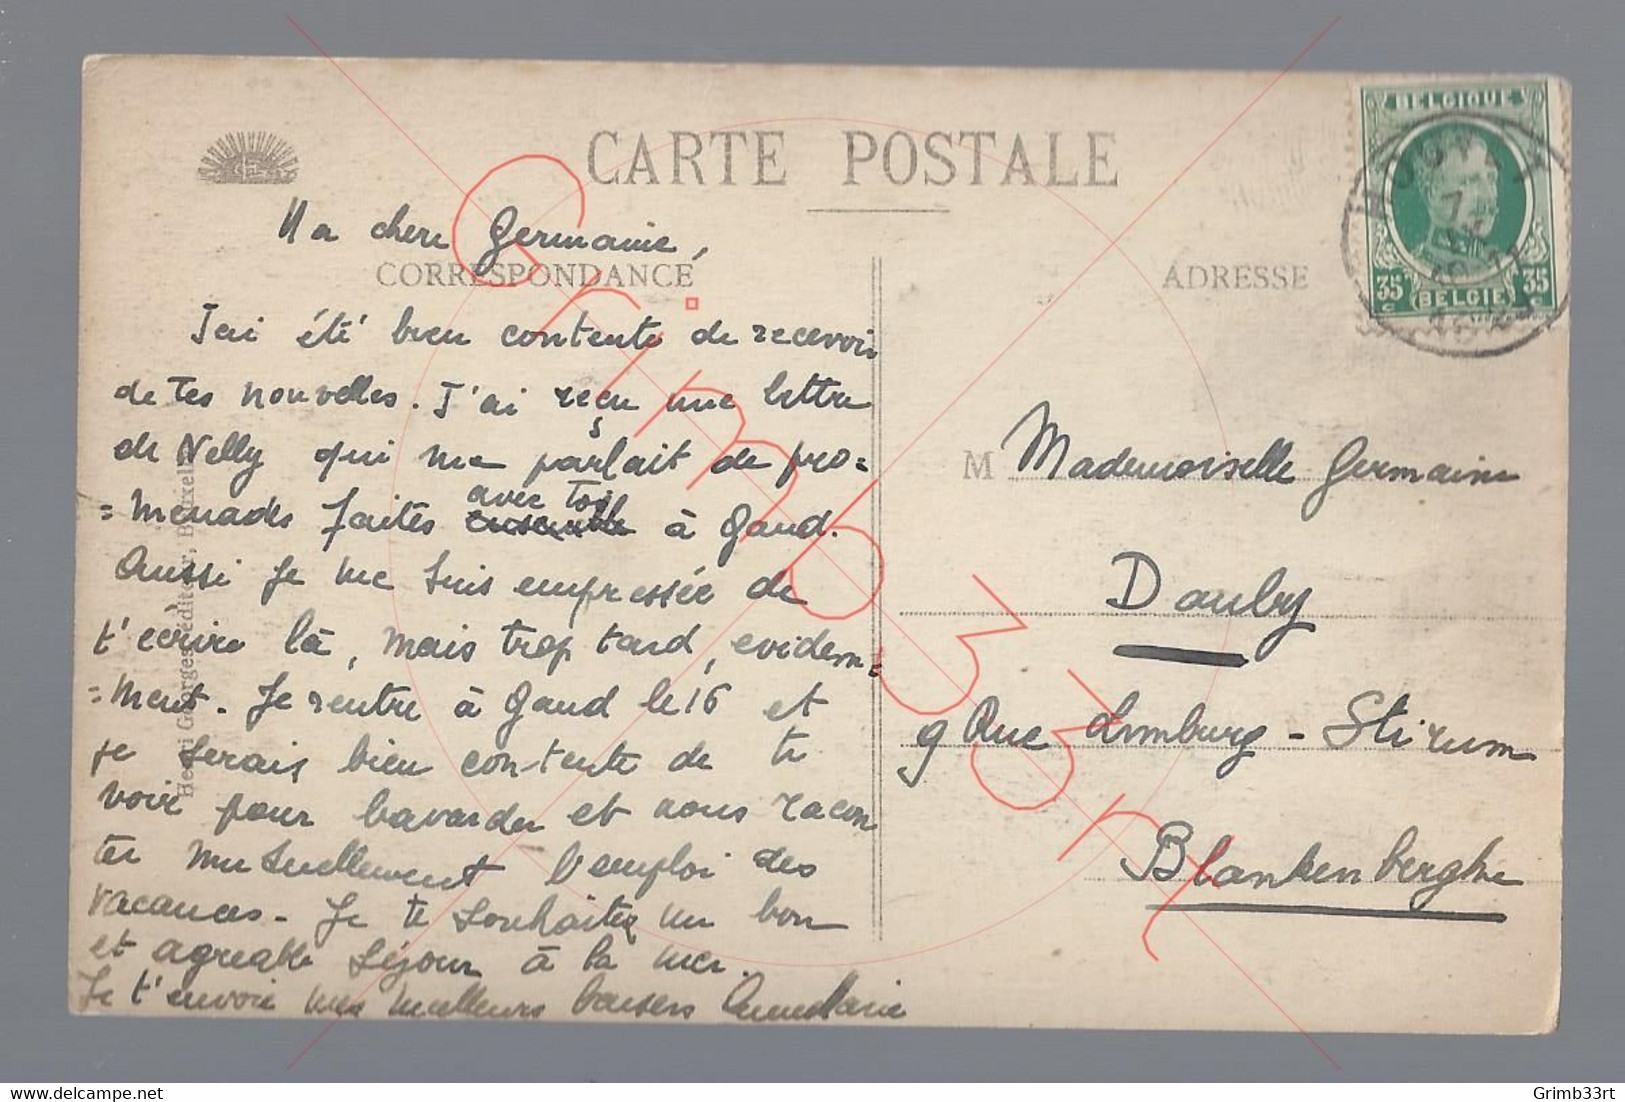 CARTE POSTALE
Ma chère Germaine,
CORRESPONDANCE
J'ai été bien contente de recevoir
de tes nouvelles. J'ai reçu une lettre
de Nelly qui me parlait de pro=
=menades faites avec toi à Gand.
Aussi je me suis empressée de
t'écrire là, mais trop tard, evidem=
=ment. Je rentre à Gand le 16 et
je serais bien contente de te
voir pour bavarder et nous racon
ter mutuellement l'emploi des
vacances - Je te souhaite un bon
et agreable séjour à la mer.
Je t'envoie mes meilleurs baisers AnneMarie
Henri Georges, éditeur, Bruxelles
BELGIQUE
35 35
c BELGIE c
ADRESSE
M Mademoiselle Germaine
Dauby
9 Rue Limburg - Stirum
Blankenberghe
Grimb33rt
delcampe.net
Grimb33rt